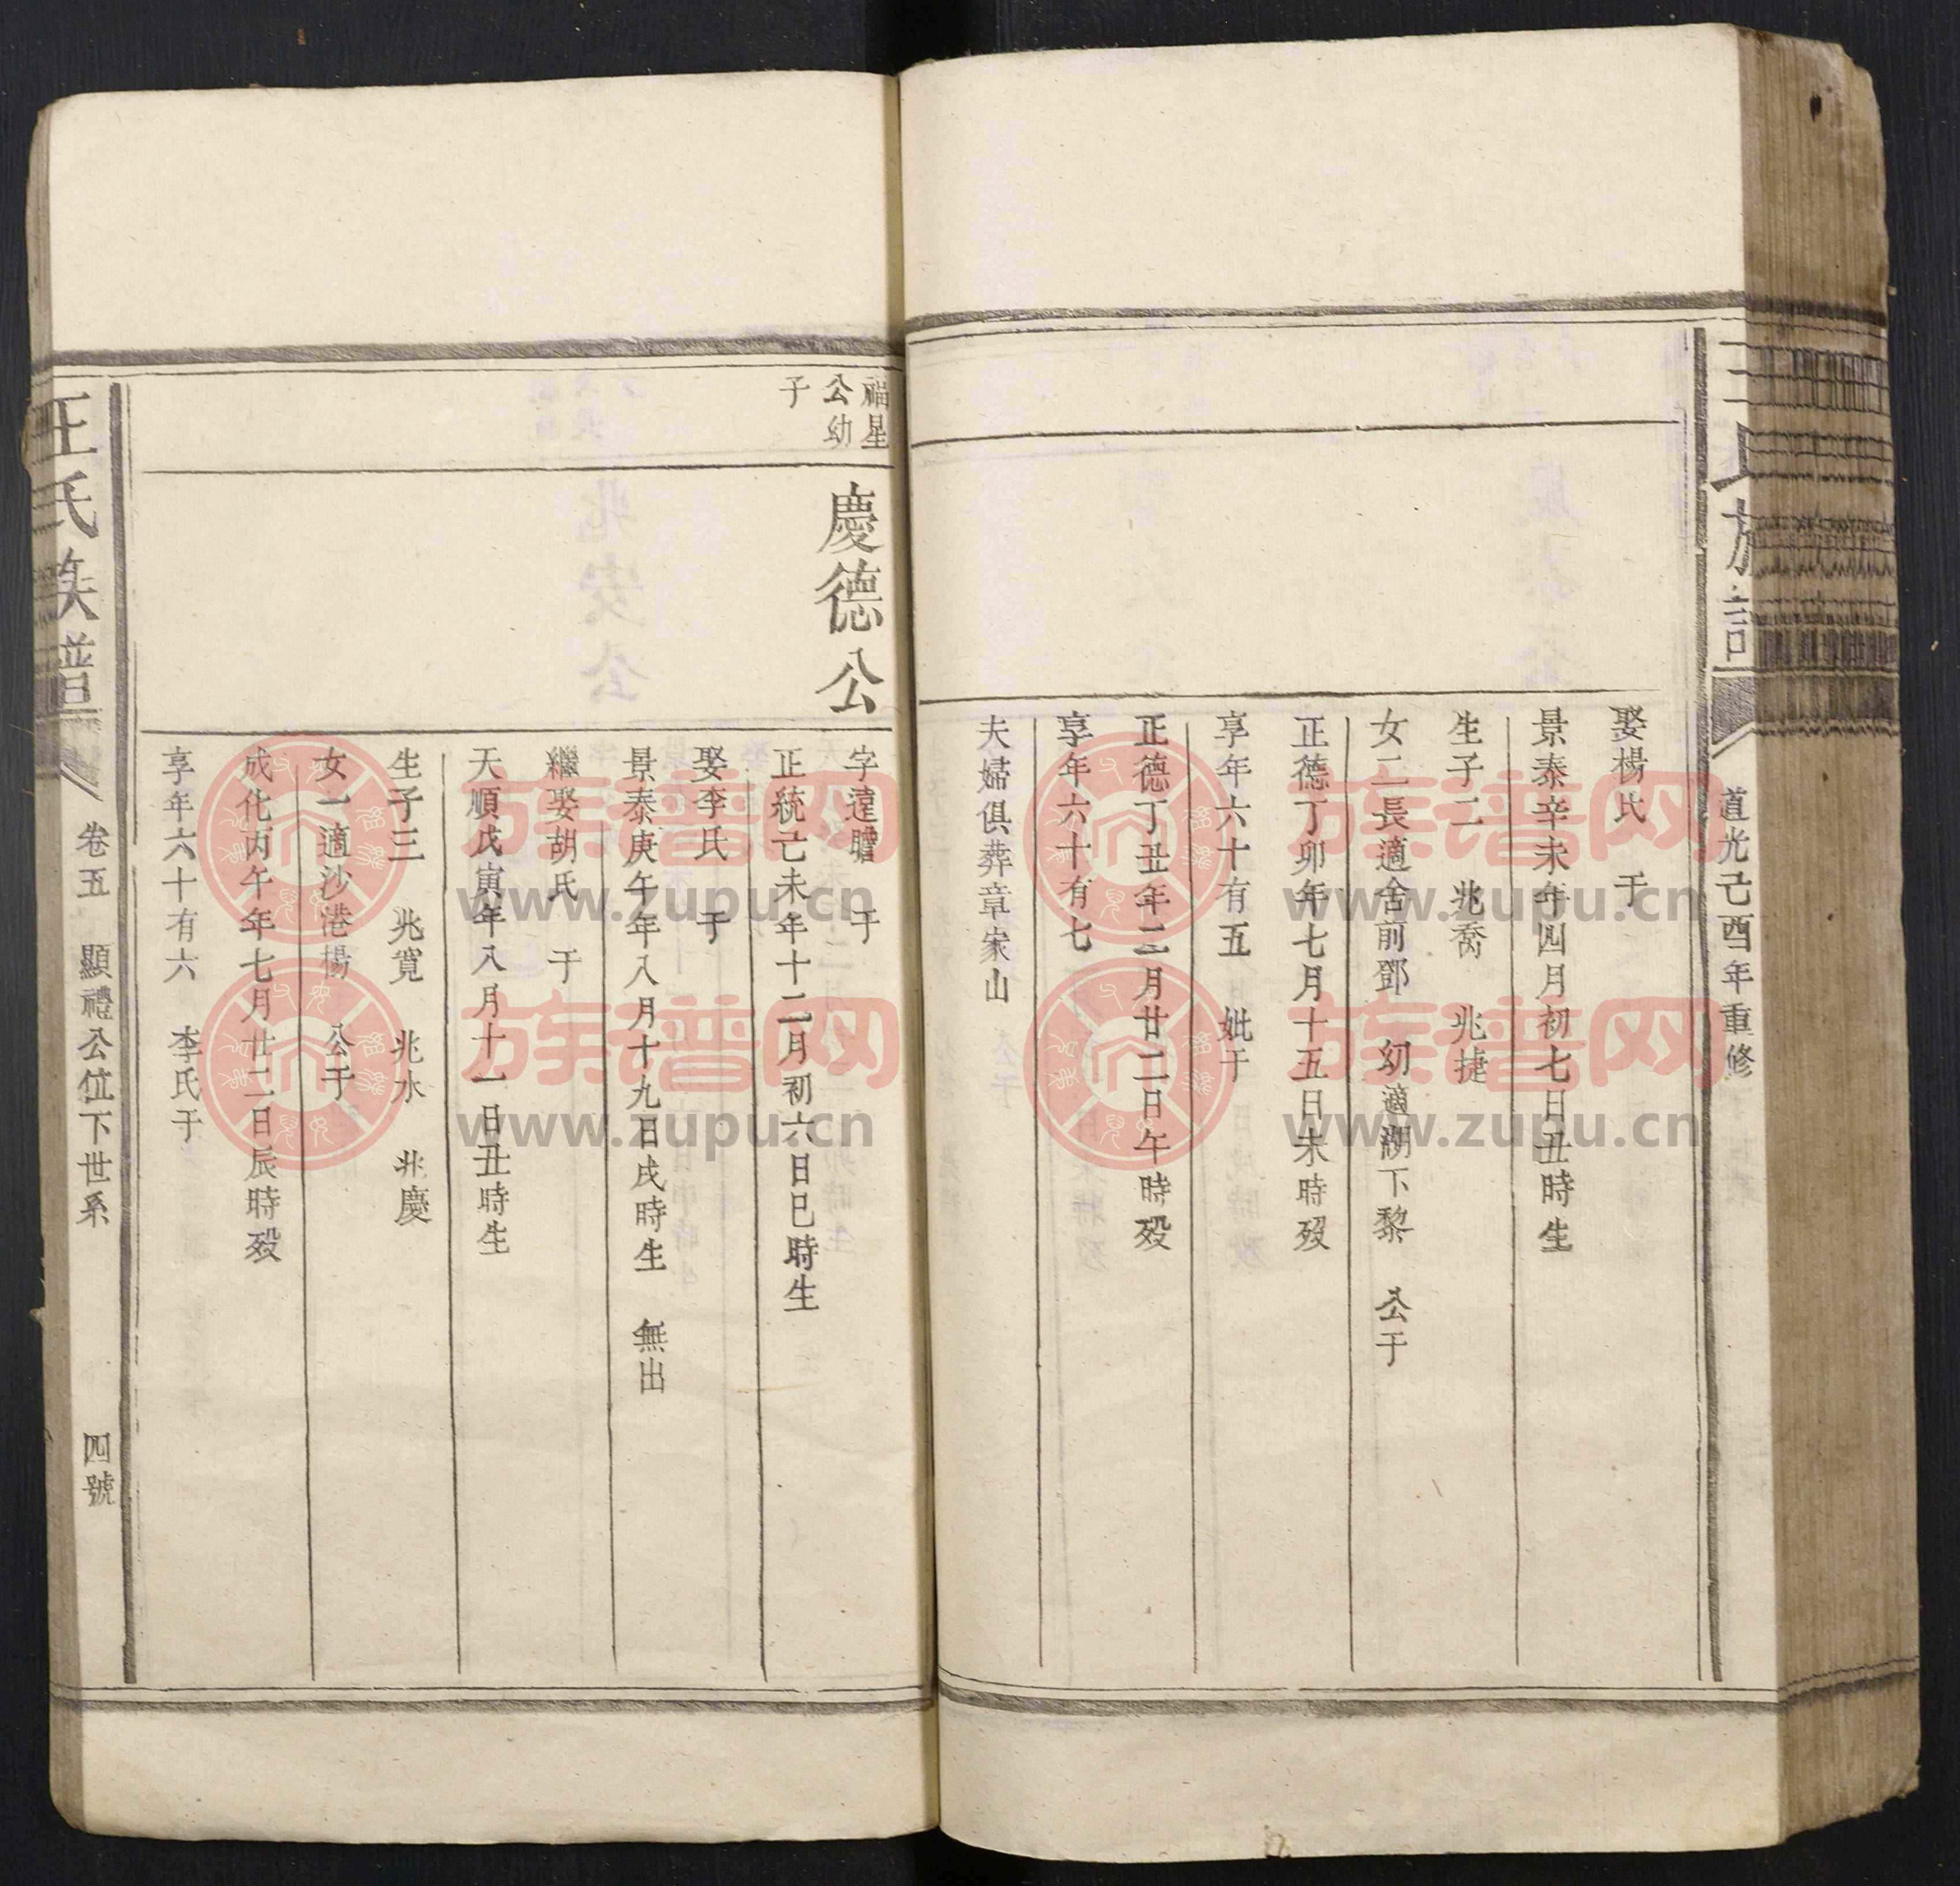 王氏族譜
道光己酉年重修
娶楊氏 于
景泰辛未年四月初七日丑時生
生子二 兆喬 兆捷
女二長適舍前鄧 幼適湖下黎 公于
正德丁卯年七月十五日未時歿
享年六十有五 妣于
正德丁丑年二月廿二日午時歿
享年六十有七
夫婦俱葬章家山
福星
公幼
子
慶德公
字遠瞻 于
正統己未年十二月初六日巳時生
娶李氏 于
景泰庚午年八月十九日戌時生 無出
繼娶胡氏 于
天順戊寅年八月十一日丑時生
生子三 兆寬 兆水 兆慶
女一適沙港楊 公于
成化丙午年七月廿二日辰時歿
享年六十有六 李氏于
王氏族譜
卷五 顯禮公位下世系
四號
族譜网
www.zupu.cn
族譜网
www.zupu.cn
族譜网
www.zupu.cn
族譜网
www.zupu.cn